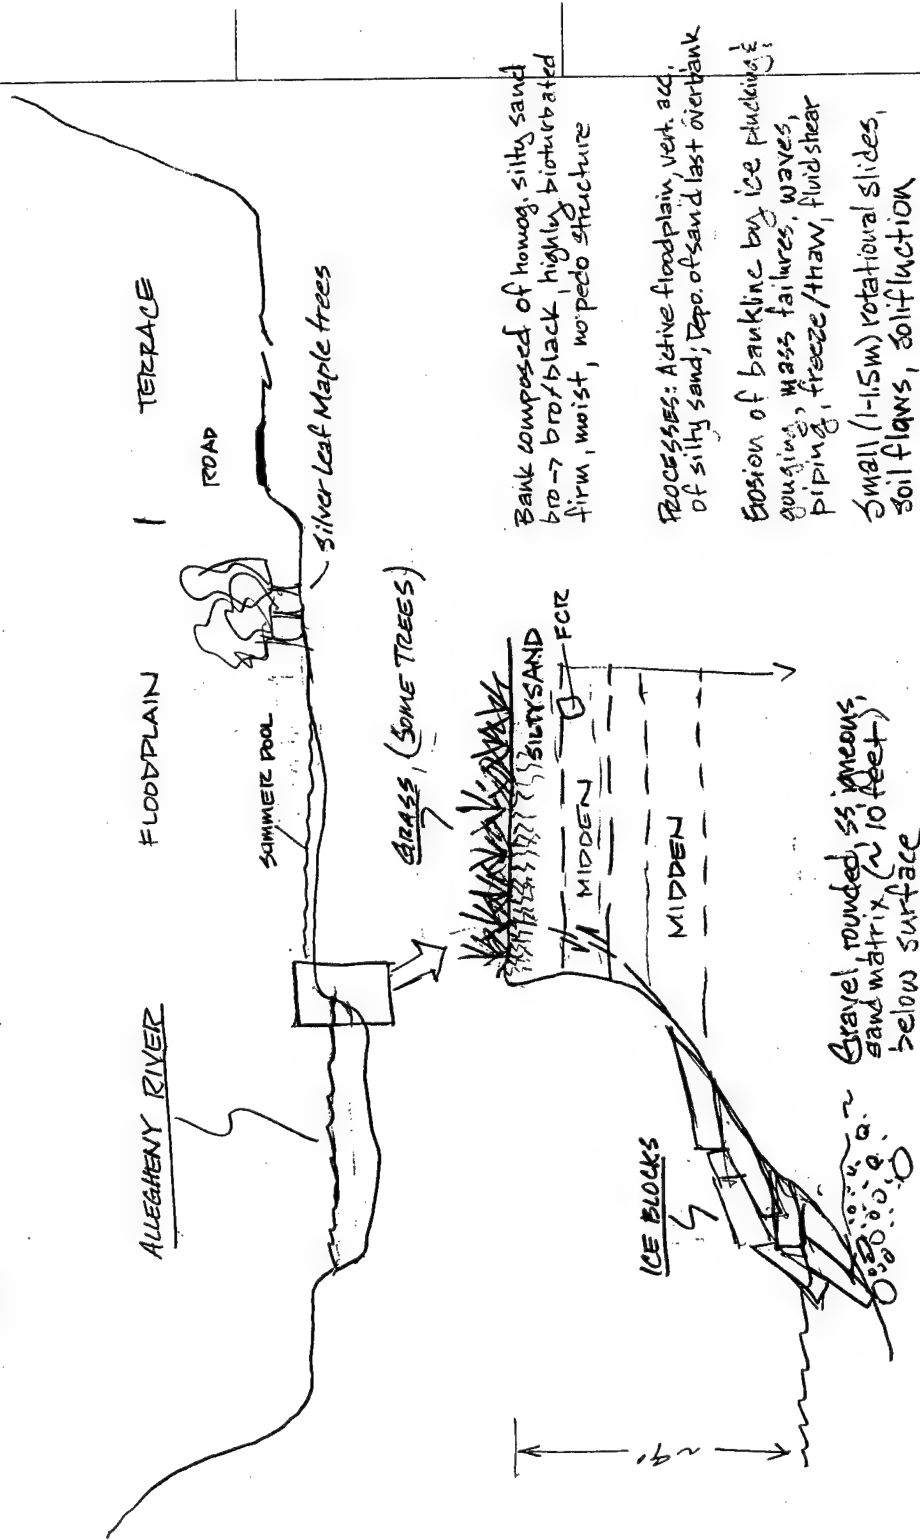 FLOODPLAIN | TERRACE
ALLEGHENY RIVER
SUMMER POOL
ROAD
Silver Leaf Maple trees
GRASS, (SOME TREES)
SILTY SAND
FCR
MIDDEN
MIDDEN
ICE BLOCKS
~9'
Gravel, rounded, ss, igneous,
sand matrix (~10 feet)
below surface
Bank composed of homog. silty sand
bro -> bro/black, highly bioturbated
firm, moist, no pedo structure
PROCESSES: Active floodplain, vert. acc.
of silty sand; Depo. of sand last overbank
Erosion of bankline by ice plucking &
gouging, mass failures, waves,
piping, freeze/thaw, fluid shear
Small (1-1.5m) rotational slides,
soil flows, solifluction